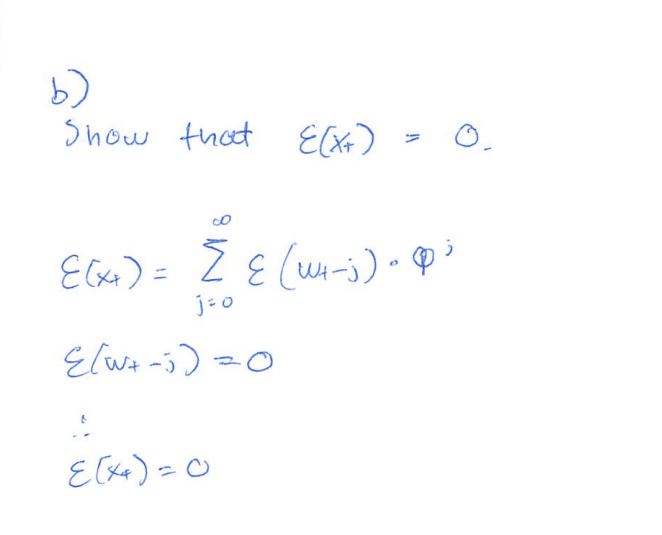 b)
Show that Ɛ(Xt) = 0.
Ɛ(xt) = ∑_{j=0}^{∞} Ɛ(wt-j) · φ^j
Ɛ(wt-j) = 0
∴
Ɛ(xt) = 0